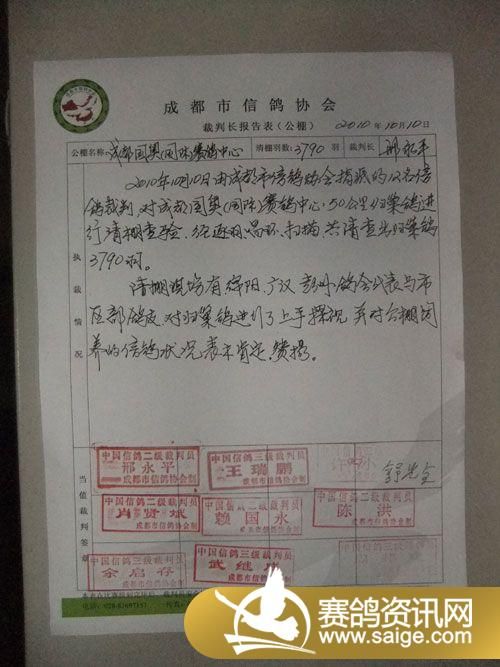 成都市信鸽协会
裁判长报告表(公棚) 2010年10月10日
公棚名称 成都国奥(国际)赛鸽中心 清棚羽数: 3790 羽 裁判长 邢永平
2010年10月10日由成都市信鸽协会指派的12名信
鸽裁判,对成都国奥(国际)赛鸽中心,50公里归巢鸽进
行清棚查验,经逐羽唱环、扫描,共清查出归巢鸽
3790羽。
清棚现场有绵阳、广汉、彭州鸽会代表与市
区部鸽友,对归巢鸽进行了上手探视,并对公棚饲
养的信鸽状况表示肯定、赞扬。
执裁情况
当值裁判签章
中国信鸽二级裁判员
邢永平
成都市信鸽协会制
中国信鸽三级裁判员
王瑞鹏
成都市信鸽协会制
舒光全
中国信鸽二级裁判员
肖贤斌
成都市信鸽协会制
中国信鸽三级裁判员
赖国永
成都市信鸽协会制
中国信鸽三级裁判员
陈洪
成都市信鸽协会制
中国信鸽三级裁判员
余启存
成都市信鸽协会制
中国信鸽三级裁判员
武继
成都市信鸽协会制
赛鸽资讯网
www.saige.com